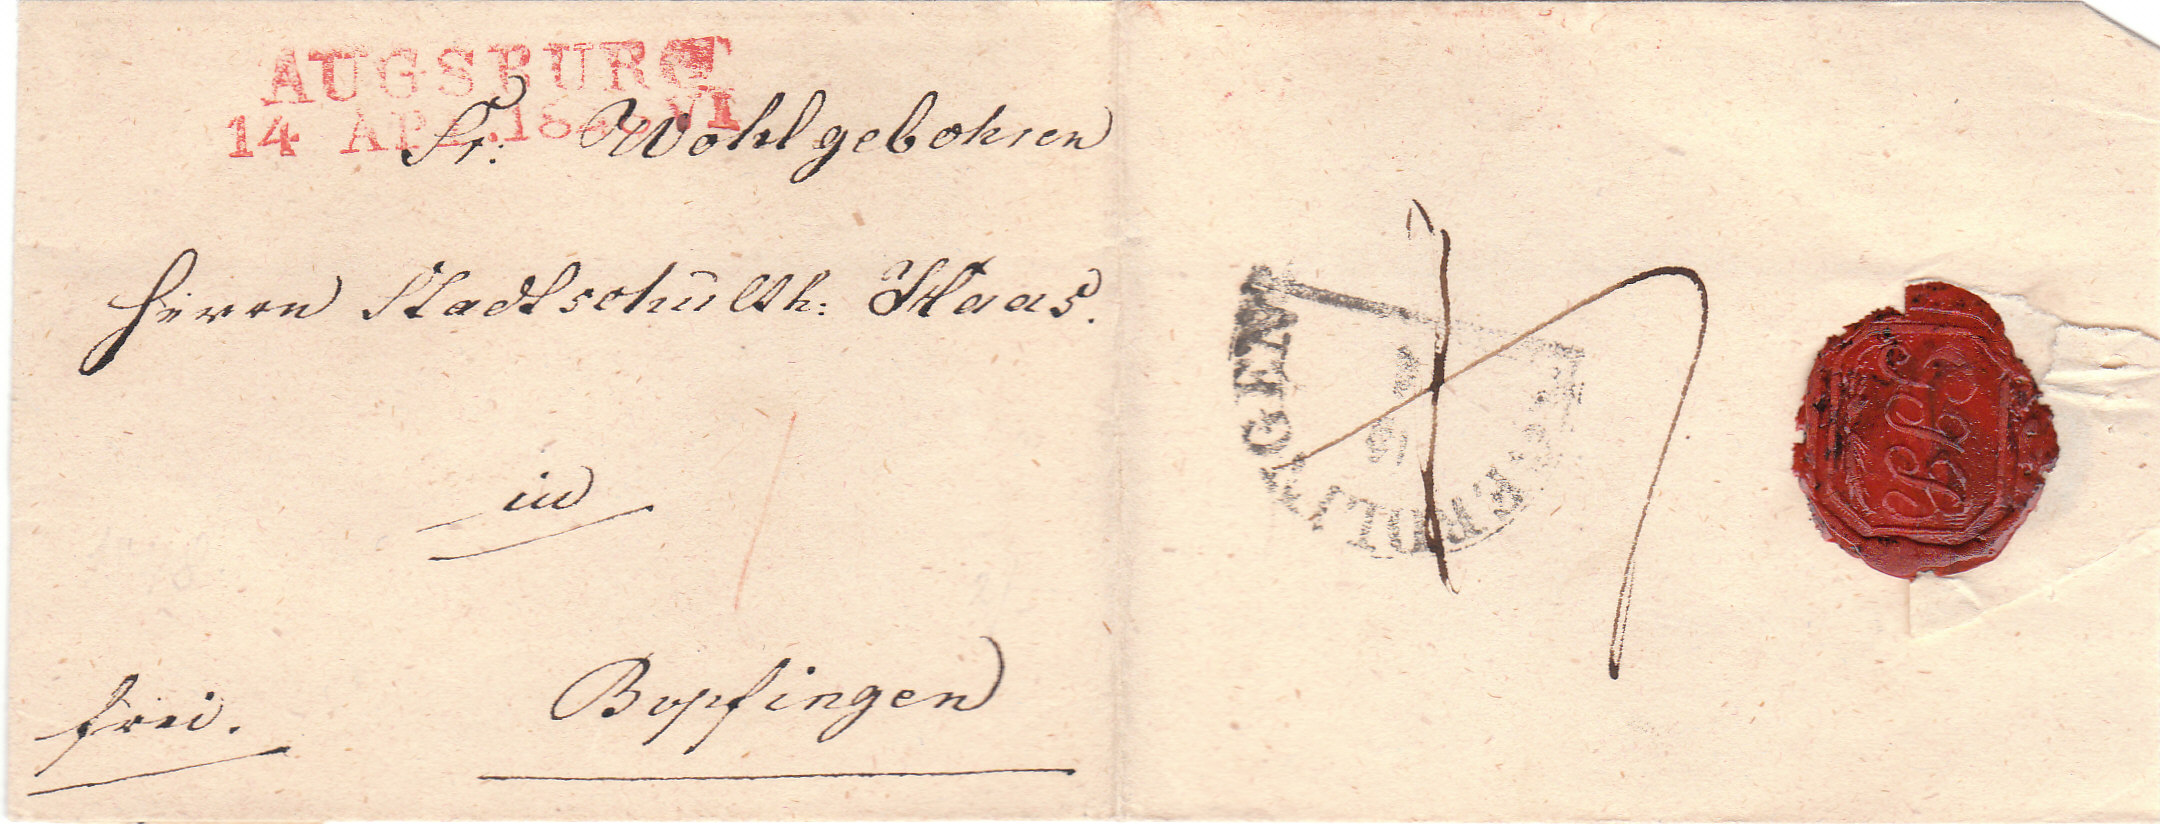 AUGSBURG
14 APR. 184 VI
Sr. Wohlgebohren
Herrn Stadtschulth: Haas.
in
Bopfingen
frei.
NÖRDLINGEN